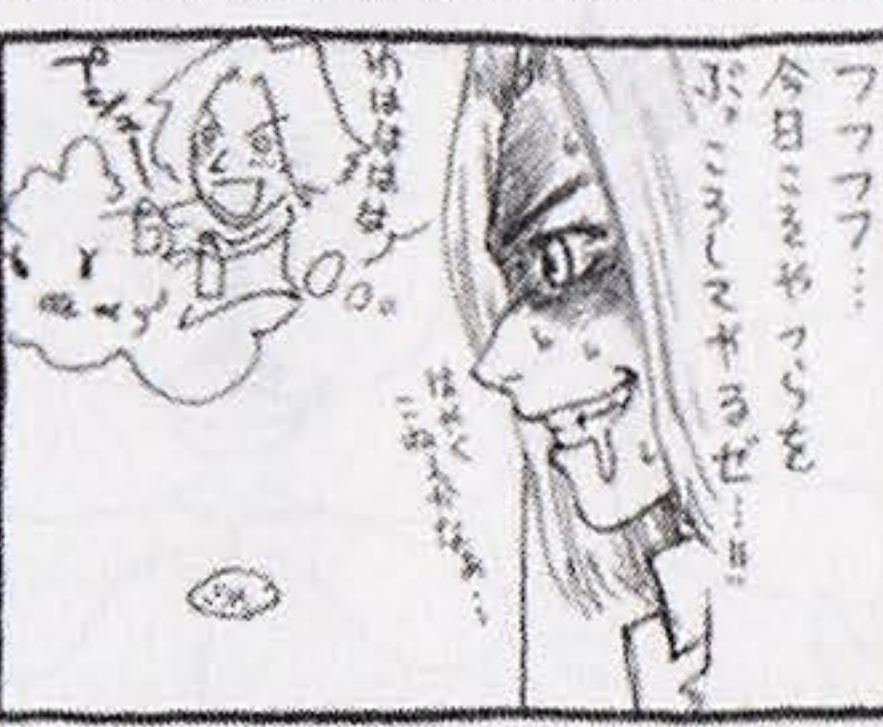 フフフフ…
今日こそやつらを
ぶっころしてやるぜ…!!
はやく
こねえかなぁ…
うはははは